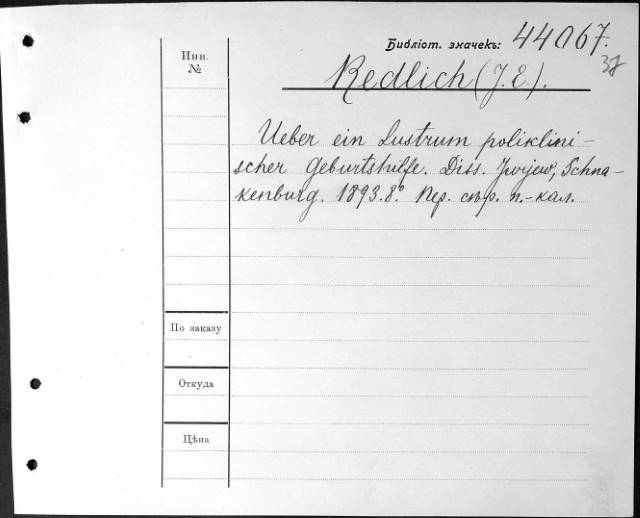 Библіот. значекъ: 44067.
37
Инв. №
Redlich (J. E.).
Ueber ein Lustrum poliklini-
scher Geburtshilfe. Diss. Jurjew, Schna-
kenburg. 1893. 8º. Пер. сѣр. п.-кал.
По заказу
Откуда
Цѣна